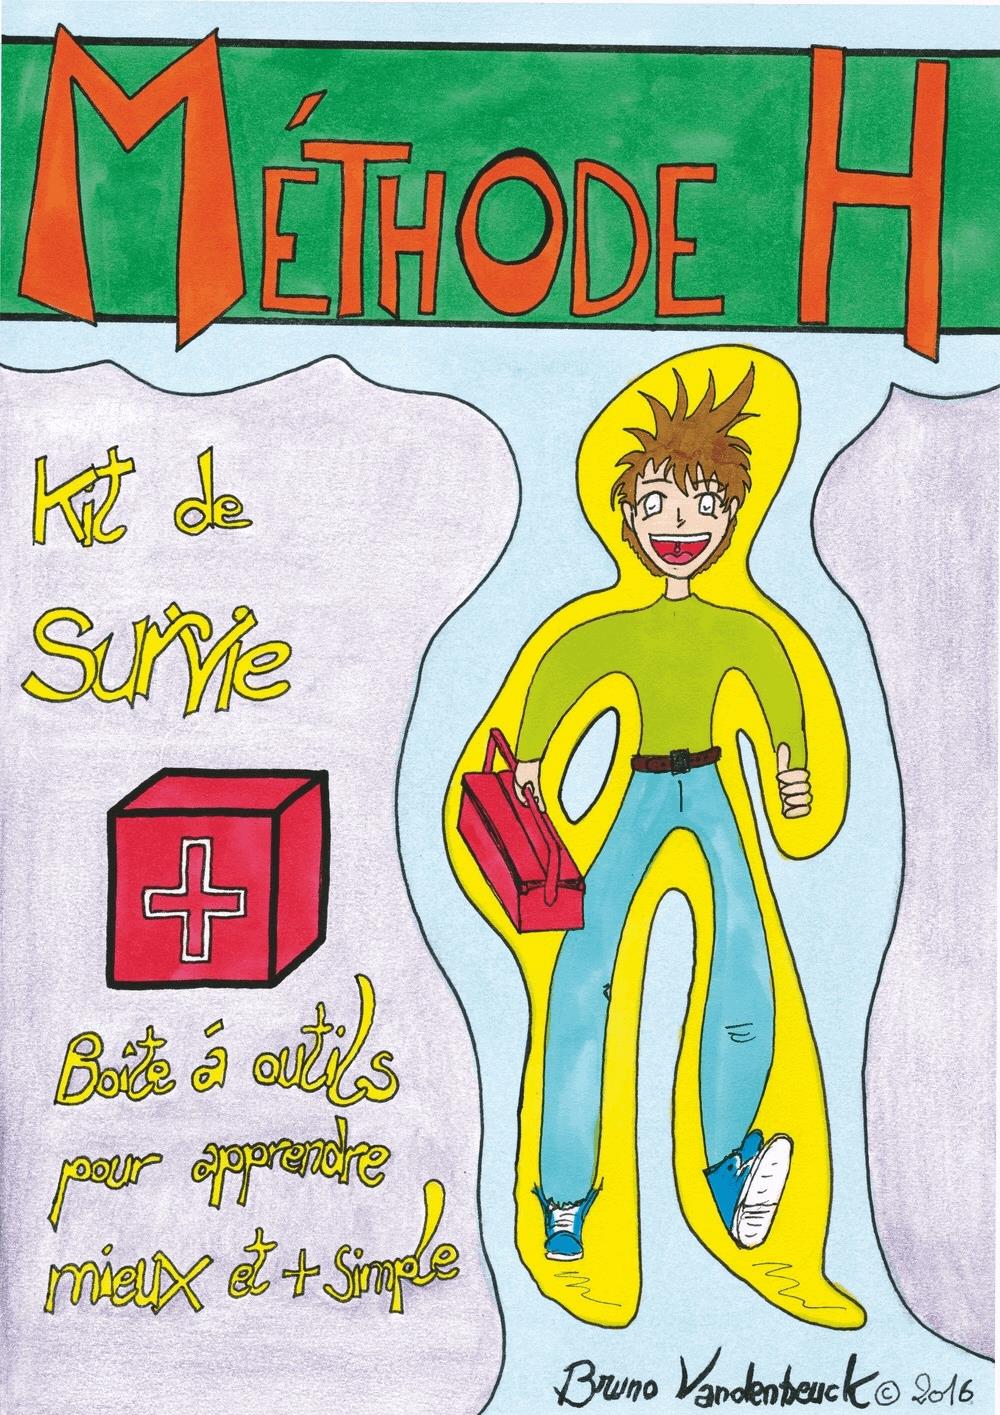 MÉTHODE H
Kit de
Survie
Boîte á outils
pour apprendre
mieux et + simple
Bruno Vandenbeuck © 2016